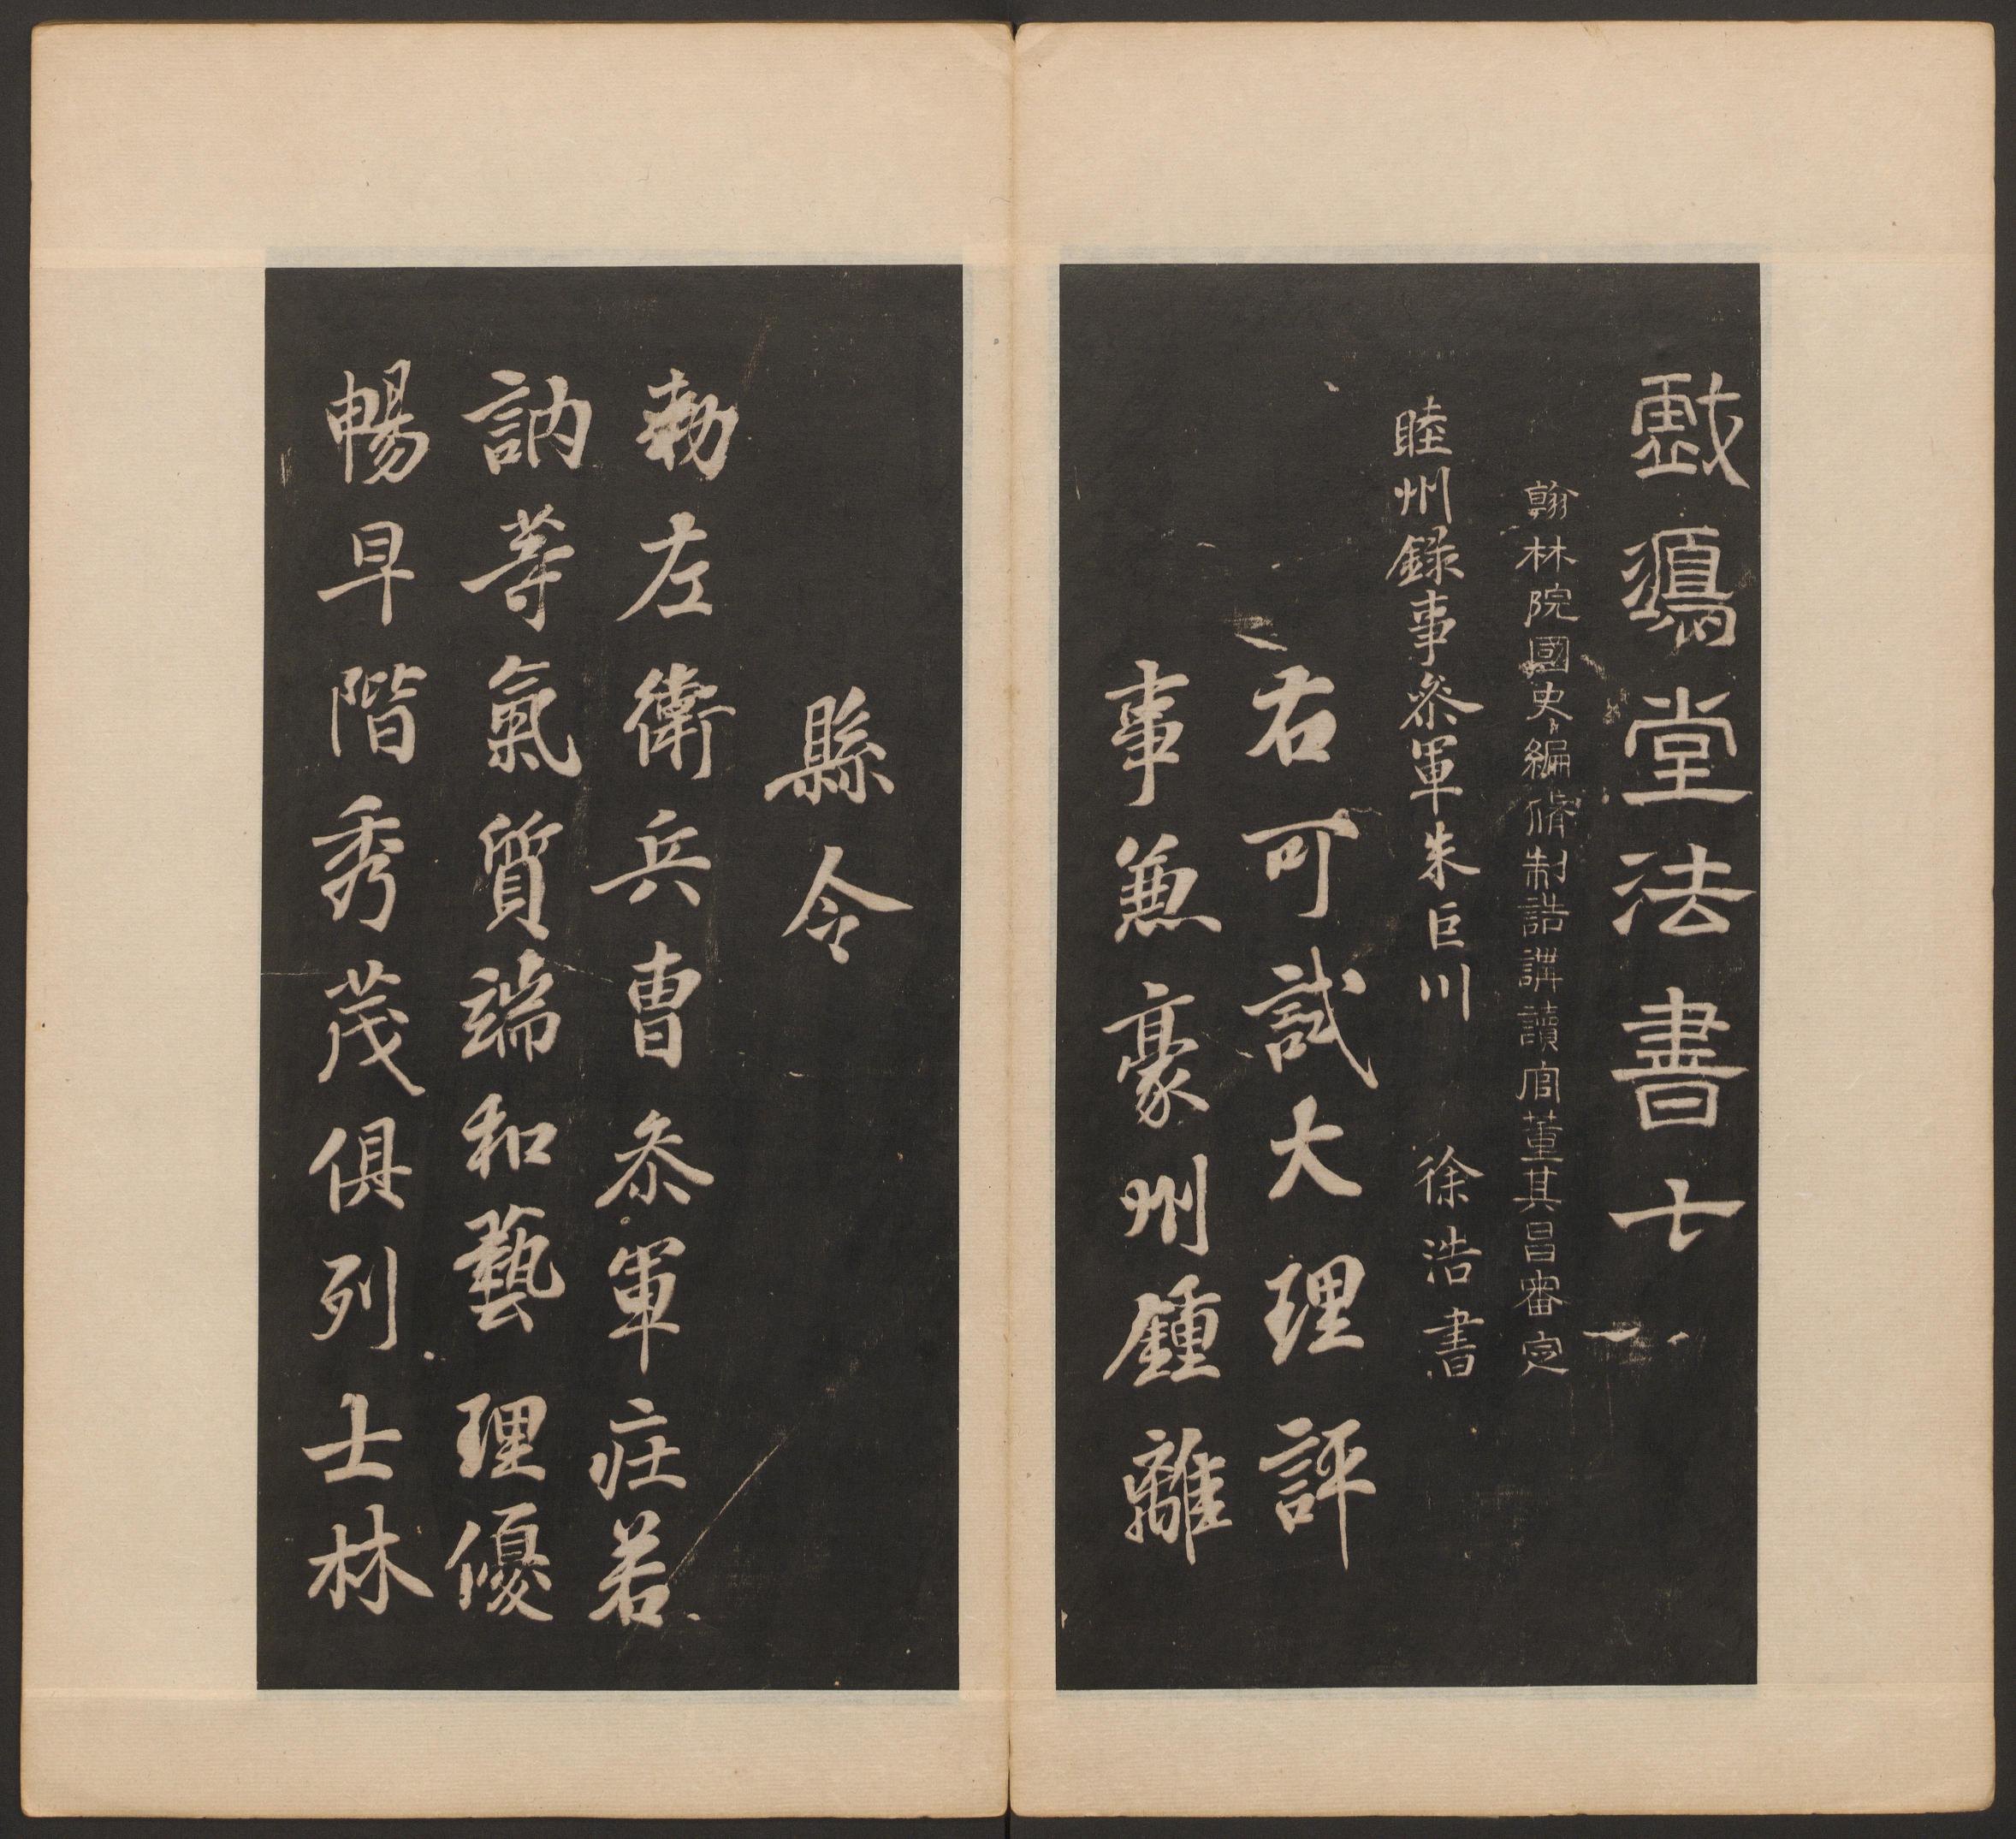 戲鴻堂法書七
翰林院國史編脩制誥講讀官董其昌審定
睦州錄事叅軍朱巨川 徐浩書
右可試大理評
事兼豪州鍾離
縣令
勅左衛兵曹叅軍庄若
訥等氣質端和藝理優
暢早階秀茂俱列士林